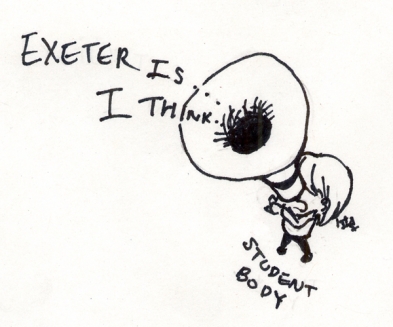 EXETER IS...
I THINK...
STUDENT
BODY